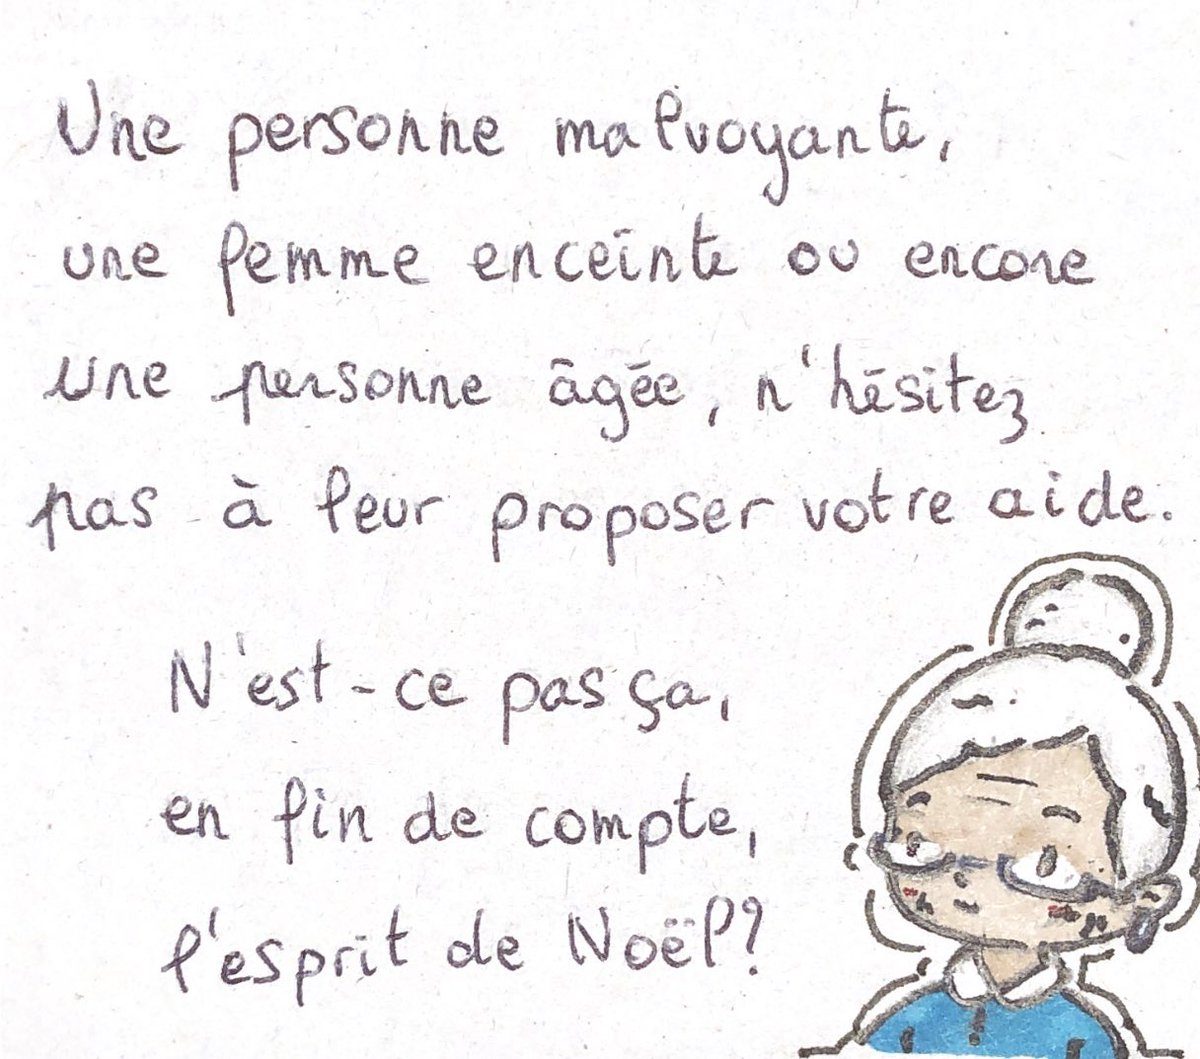 Une personne malvoyante,
une femme enceinte ou encore
une personne âgée, n'hésitez
pas à leur proposer votre aide.
N'est-ce pas ça,
en fin de compte,
l'esprit de Noël?